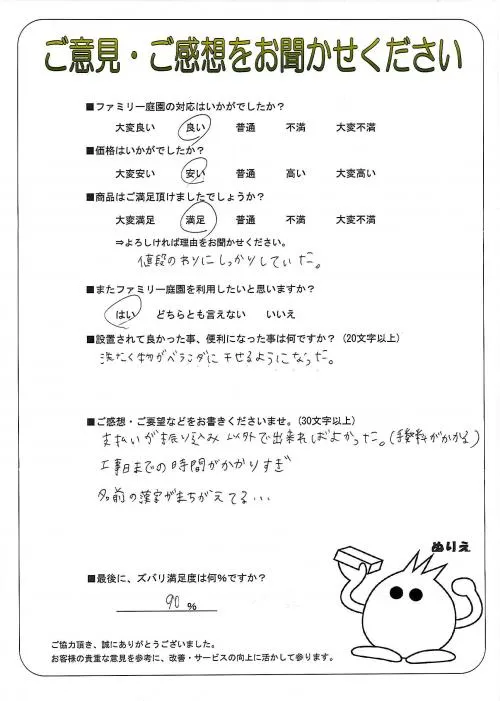 ご意見・ご感想をお聞かせください
■ファミリー庭園の対応はいかがでしたか?
大変良い 良い 普通 不満 大変不満
■価格はいかがでしたか?
大変安い 安い 普通 高い 大変高い
■商品はご満足頂けましたでしょうか?
大変満足 満足 普通 不満 大変不満
⇒よろしければ理由をお聞かせください。
値段のわりにしっかりしていた。
■またファミリー庭園を利用したいと思いますか?
はい どちらとも言えない いいえ
■設置されて良かった事、便利になった事は何ですか?(20文字以上)
洗たく物がベランダに干せるようになった。
■ご感想・ご要望などをお書きくださいませ。(30文字以上)
支払いが振り込み以外で出来ればよかった。(手数料がかかる)
工事日までの時間がかかりすぎ
名前の漢字がまちがえてる・・・
ぬりえ
■最後に、ズバリ満足度は何%ですか?
90 %
ご協力頂き、誠にありがとうございました。
お客様の貴重な意見を参考に、改善・サービスの向上に活かして参ります。